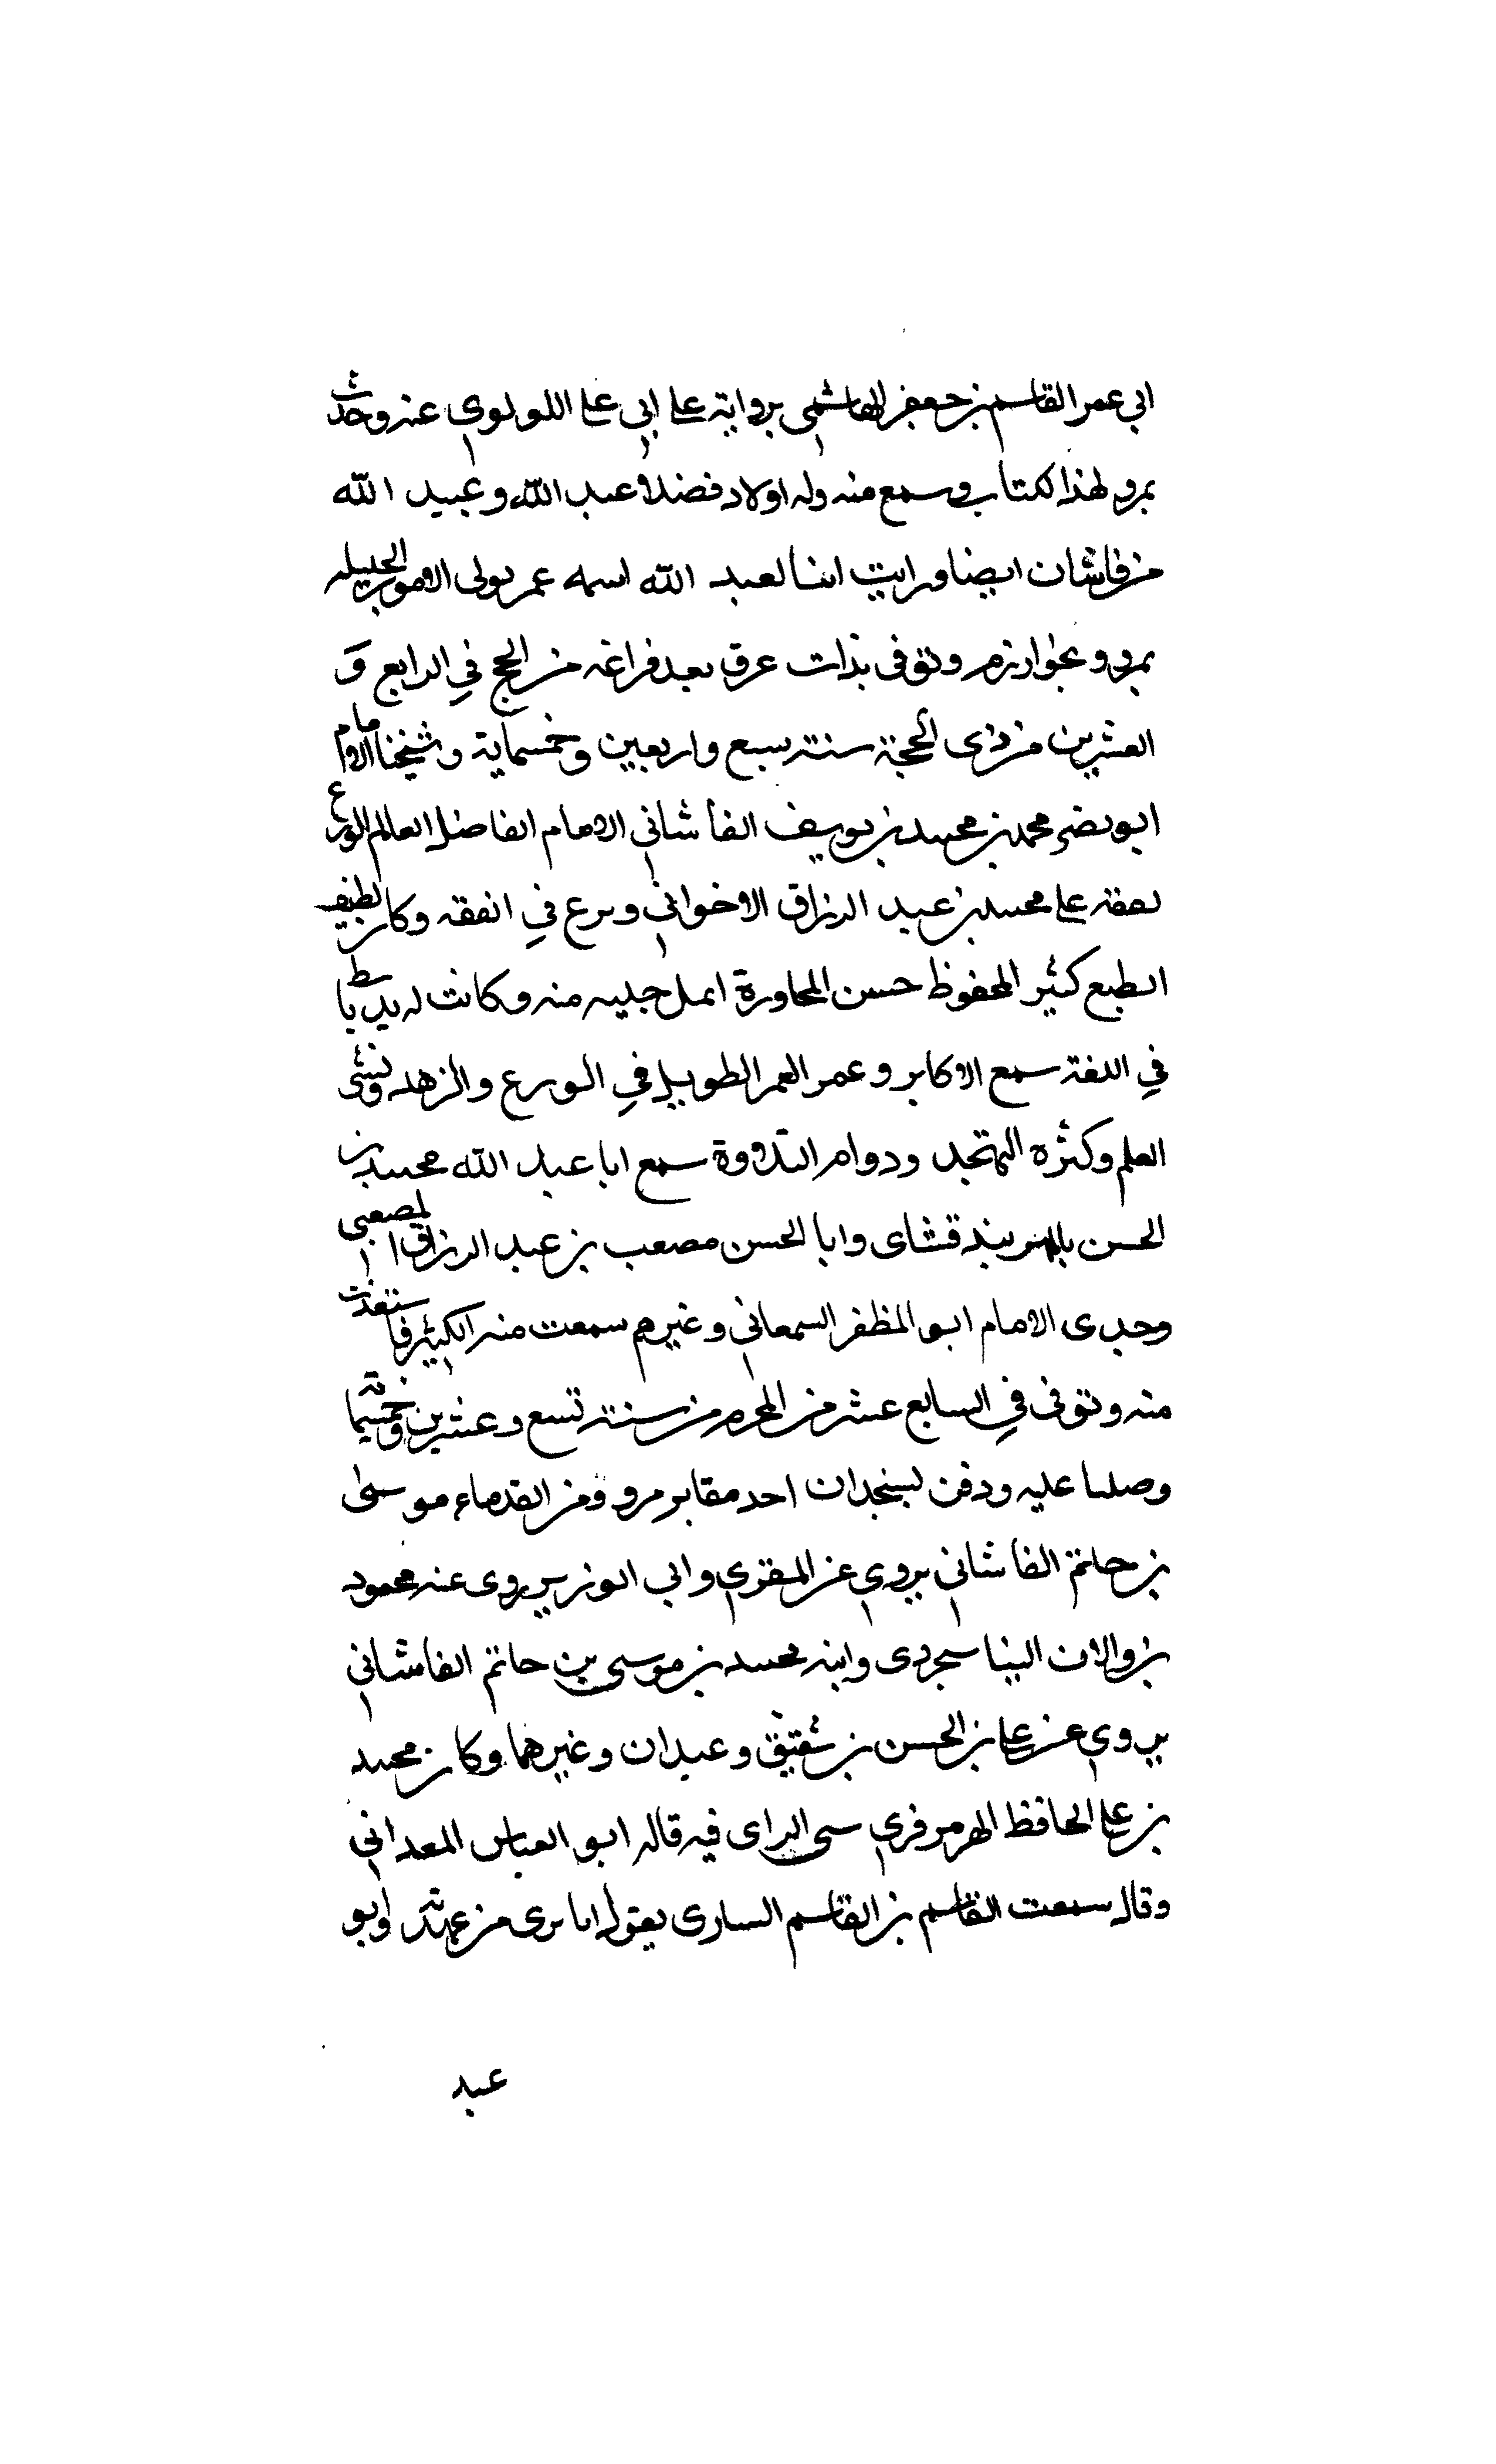 ابي عمر القاسم بن جعفر الهاشمي بروايته على ابي على اللولوى عنه وحدث
بمرو لهذا لكتاب وسمع منه وله اولاد فضلا وعبد الله وعبيد الله
من فاشان ايضا ورايت ابنا لعبد الله اسمه عمر تولى الامور الجليله
بمرو و بخوارزم وتوفى بذات عرق بعد فراغه من الحج في الرابع و
العشرين من ذى الحجة سنة سبع واربعين وخمسماية وشيخنا الامام
ابو نصر محمد بن محمد بن يوسف الفاشاني الامام الفاضل العالم الورع
تفقه على محمد بن عبد الرزاق الاخواني وبرع في الفقه وكان لطيف
الطبع كثير المحفوظ حسن المحاورة امل جليه منه وكانت له يد باسطة
في اللغة سمع الاكابر وعمر العمر الطويل في الورع والزهد ونشر
العلم وكثره التهجد ودوام التلاوة سمع ابا عبد الله محمد بن
الحسن قشاى وابا الحسن مصعب بن عبد الرزاق المصعبى
وجدى الامام ابو المظفر السمعاني وغيرهم سمعت منه الكثير فاستفدت
منه وتوفى في السابع عشر من المحرم من سنة تسع وعشرين وخمسماية
وصلىا عليه ودفن بسنجدان احد مقابر مرو ومن القدماء موسى
بن حاتم الفاشاني يروي عن المقرى وابي الوزير روى عنه محمود
بن والان البيناسجردى وابنه محمد بن موسى بن حاتم الفاشاني
يروي عن على بن الحسن بن شقيق وعبدان وغيرهما وكان محمد
بن على الحافظ الهرمزفرى سى الراى فيه قاله ابو العباس المعداني
وقال سمعت القاسم بن القاسم السارى يقول انا برى من عهدته وابو
عبد